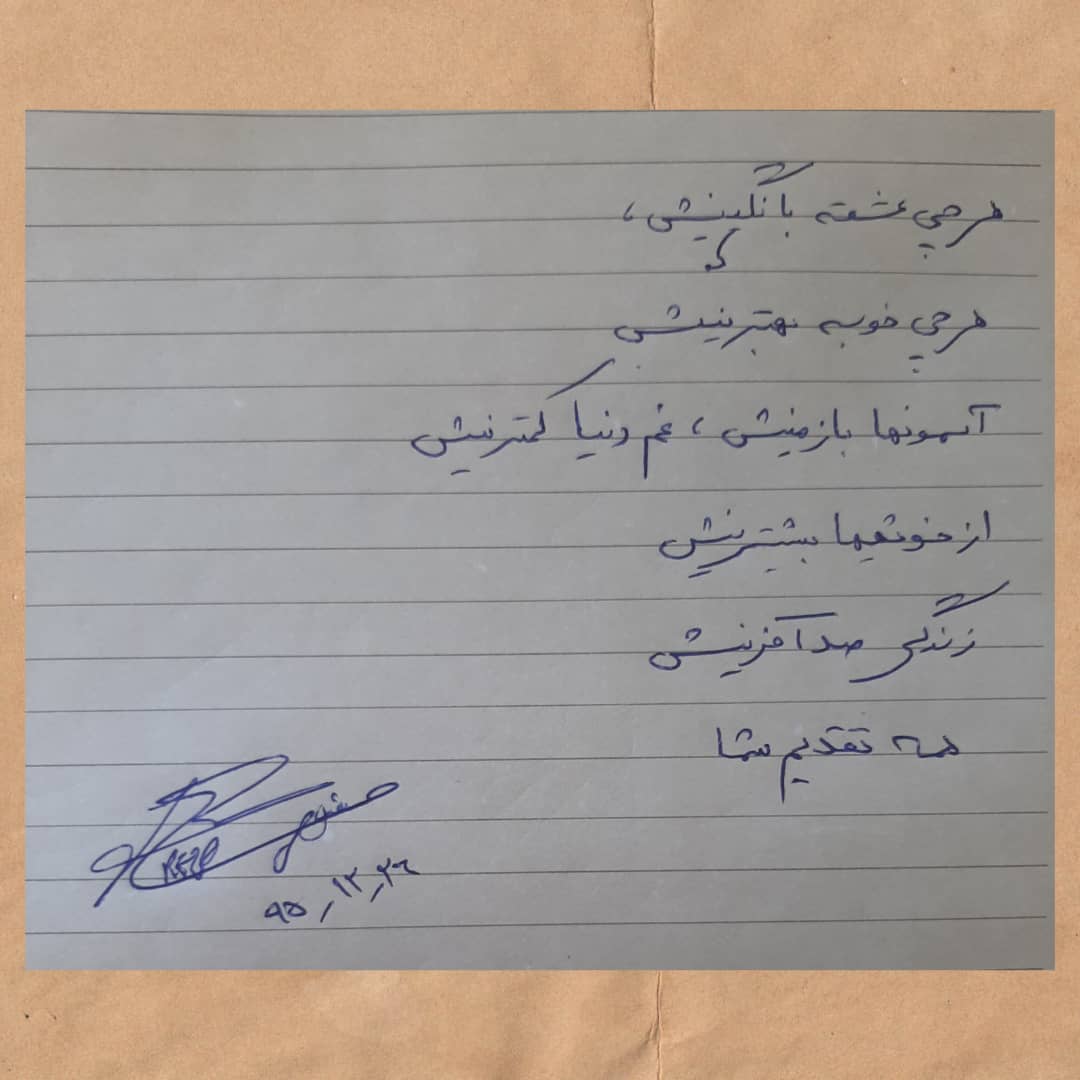 هرچی عشقه با نگینیش،
هرچی خوبه بهترینیش
آسمونها بازمنیش، غم دنیا کمترنیش
از خوشیها بیشترینیش
زندگی صد آفرینیش
همه تقدیم شما
صفوی
۹۵/۱۲/۲۶